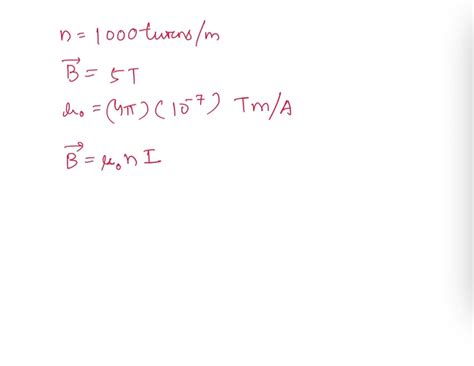 n = 1000 turns/m
B⃗ = 5T
μ₀ = (4π)(10⁻⁷) Tm/A
B⃗ = μ₀nI